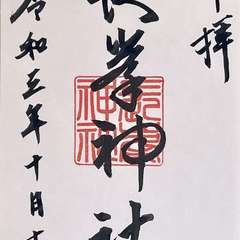 拝
峯神社
令和五年十月
神社